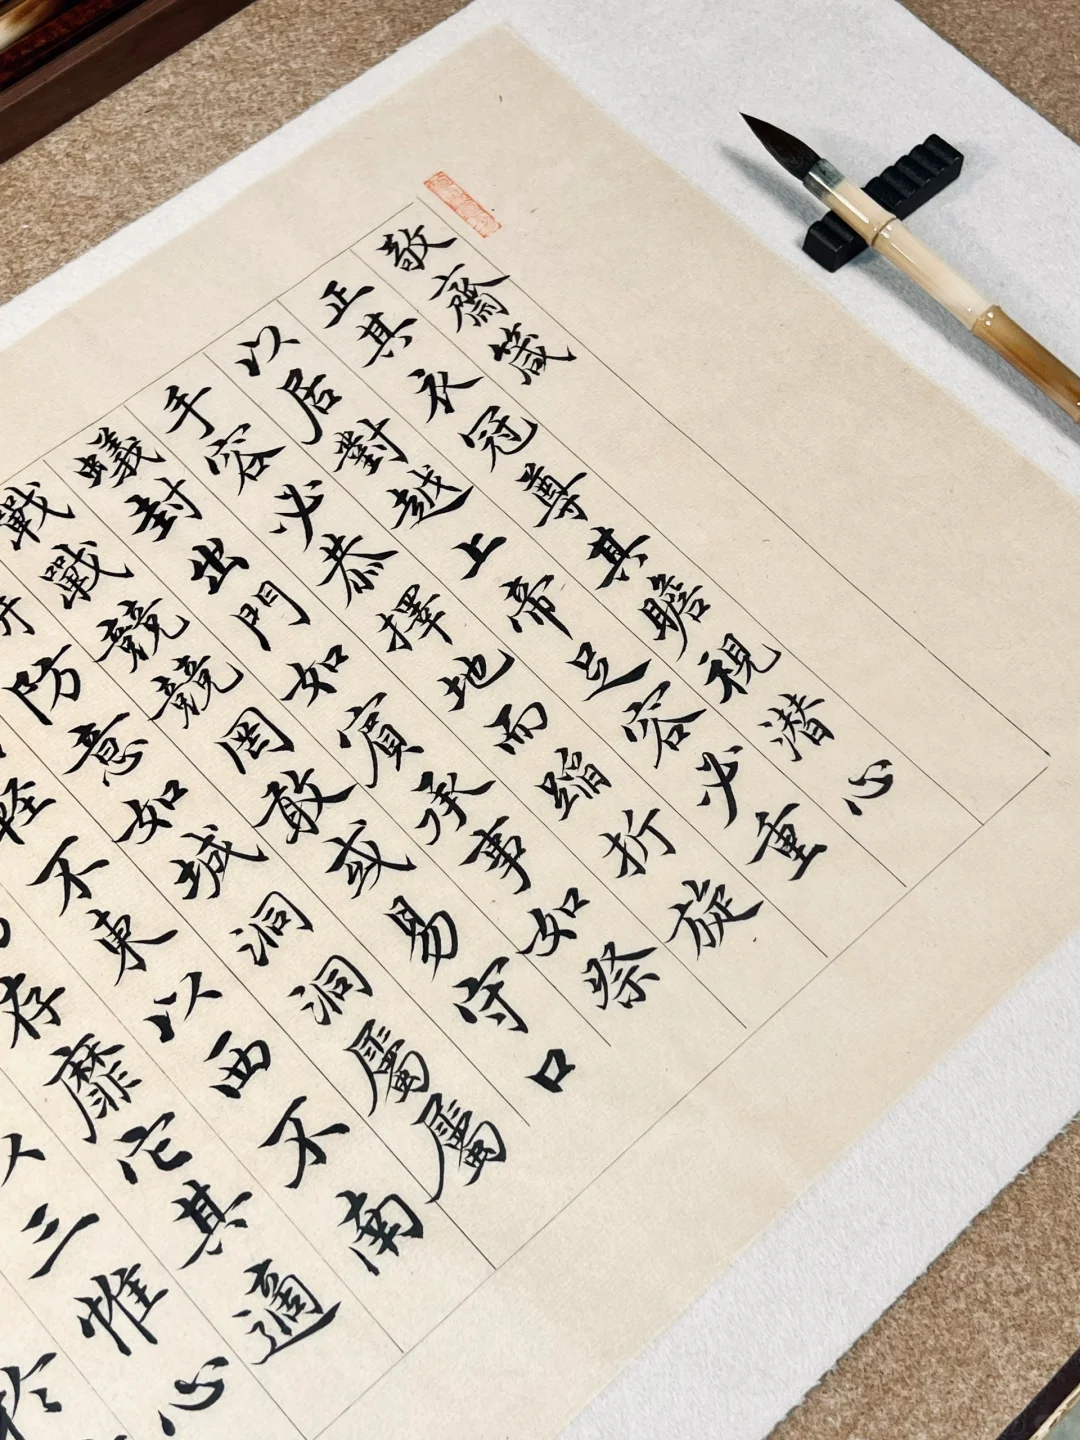 敬齋箴
正其衣冠尊其瞻視潜心
以居對越上帝足容必重
手容必恭擇地而蹈折旋
蟻封出門如賓承事如祭
戰戰競競罔敢或易守口
防意如城洞洞屬屬
不東以西不南
存靡它其適
三惟心
於